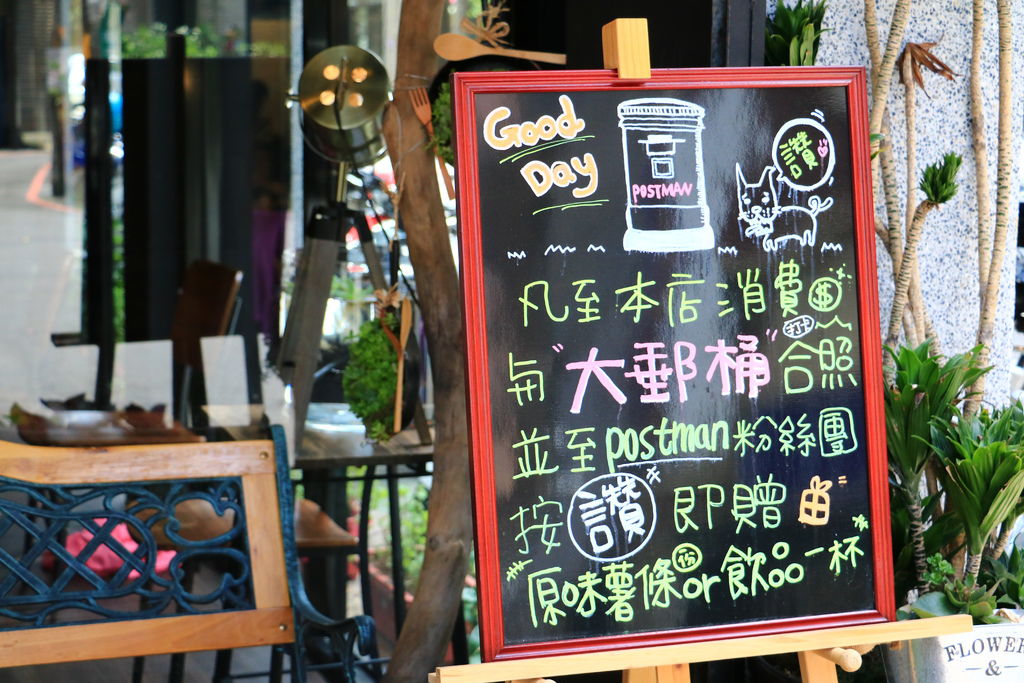 Good
Day
POSTMAN
讚
凡至本店消費$
打卡
與"大郵桶"合照
並至postman粉絲團
按讚即贈
原味薯條份or飲品一杯
FLOWER
&